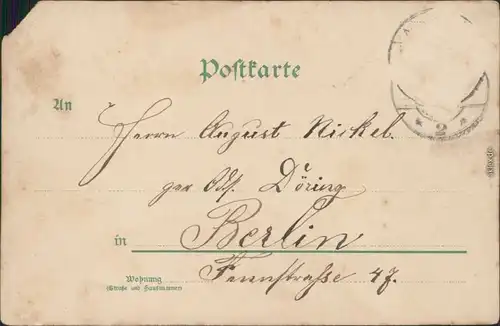 Postkarte
An
Herrn August Nickel.
per Adr. Döring
in Berlin
Wohnung
(Straße und Hausnummer)
Fennstrasse 47.
* 2 *